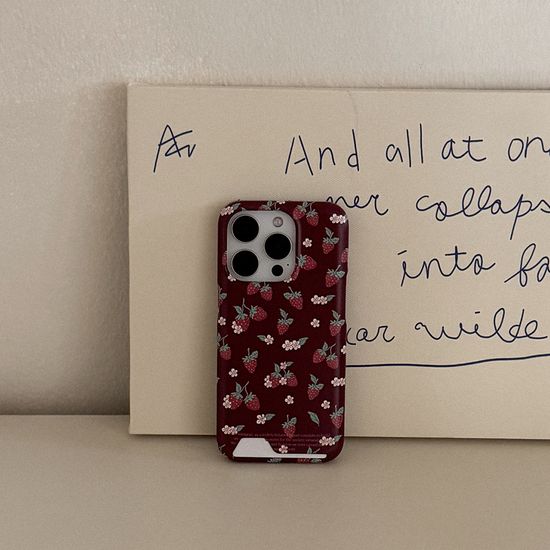 And all at on
mer collaps
into fa
car wilde